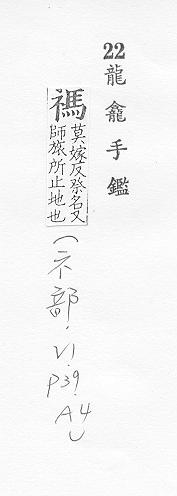 22龍龕手鑑
禡莫嫁反祭名又
師旅所止地也
(示部, V1, P39, A4)